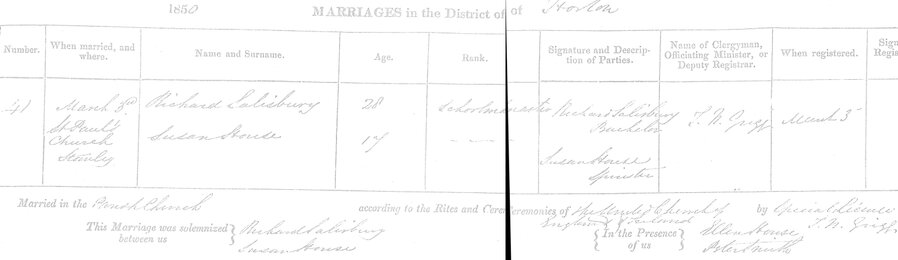 1850 MARRIAGES in the District of of Horton
Number. When married, and where. Name and Surname. Age. Rank. Signature and Description of Parties. Name of Clergyman, Officiating Minister, or Deputy Registrar. When registered. Sign Regis
41 March 3rd Richard Salisbury 28 Schoolmaster Richard Salisbury T. N. Grigg March 3
Bachelor
St Paul's Susan House 17 — — —
Church
Stanley Susan House
Spinster
Married in the Parish Church according to the Rites and Cere Ceremonies of the United Church of by Special License
England & Ireland T. N. Grigg
This Marriage was solemnized between us } Richard Salisbury { In the Presence of us } Ellen House
Susan House Peter Smith